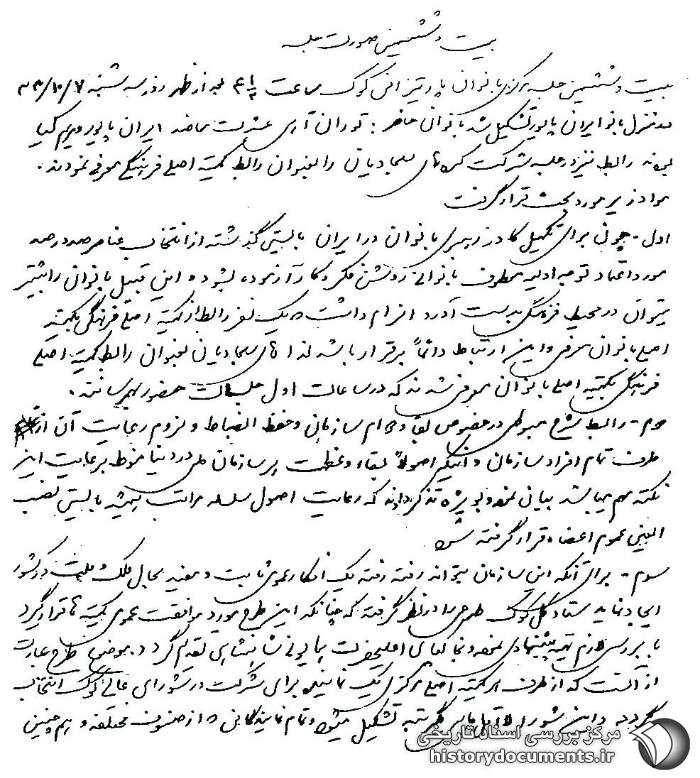 بیست و ششمین صورت جلسه
بیست و ششمین جلسه مرکزی بانوان پارتیزانی کوک ساعت ۴ ۱/۲ بعد از ظهر روز سه شنبه ۳۳/۱۰/۷
در منزل بانو ایران پاپور تشکیل شد بانوان حاضر : توران آری عشرت بماضد ایران پاپور مریم کیا
رابط نیز در جلسه شرکت کرده آقای سجادیان را بعنوان رابط کمیته اصلی فرهنگی معرفی نمودند .
مواد زیر مورد بحث قرار گرفت
اول - چون برای تکمیل کادر رهبری بانوان در ایران بایستی گذشته از انتخاب عناصر صد در صد
مورد اعتماد توجه اولیه معطوف بانوانی روشن فکر و کار آزموده بشود و این قبیل بانوان را بیشتر
میتوان در محیط فرهنگی بدست آورد الزام داشت که یک نفر رابط از کمیته اصلی فرهنگی بکمیته
اصلی بانوان معرفی و این ارتباط دائماً برقرار باشد لذا آقای سجادیان بعنوان رابط کمیته اصلی
فرهنگی بکمیته اصلی بانوان معرفی شدند که در ساعات اول جلسات حضور بهم رسانند .
دوم - رابط شرح مبسوطی در خصوص بقاء و دوام سازمان و حفظ انضباط و لزوم رعایت آن از
طرف تمام افراد سازمان و اینکه اصولاً بقاء و عظمت هر سازمان ملی در دنیا منوط برعایت این
نکته مهم میباشد بیانی نموده و بویژه تذکر دادند که رعایت اصول سلسله مراتب همیشه بایستی نصب
العینی عموم اعضاء قرار گرفته شود
سوم - برای آنکه این سازمان بتواند رفته رفته یک افکار عمومی ثابت و مفید بحال ملک و ملت در کشور
ایجاد نماید ستاد کل کوک طرحی را در نظر گرفته که چنانکه این طرح مورد موافقت عموم کمیته ها قرار گیرد
با بررسی لازم تهیه پیشنهادی نموده و بخاکپای اعلیحضرت همایونی شاهنشاهی تقدیم گردد . موضوع طرح عبارت
از آنست که از طرف هر کمیته اصلی مرکزی یک نماینده برای شرکت در شورای عالی کوک انتخاب
گردد و این شورا مرتبه تشکیل میشود و تمام نمایندگانی که از صنوف مختلفه و هم چنین
مرکز بررسی اسناد تاریخی
historydocuments.ir